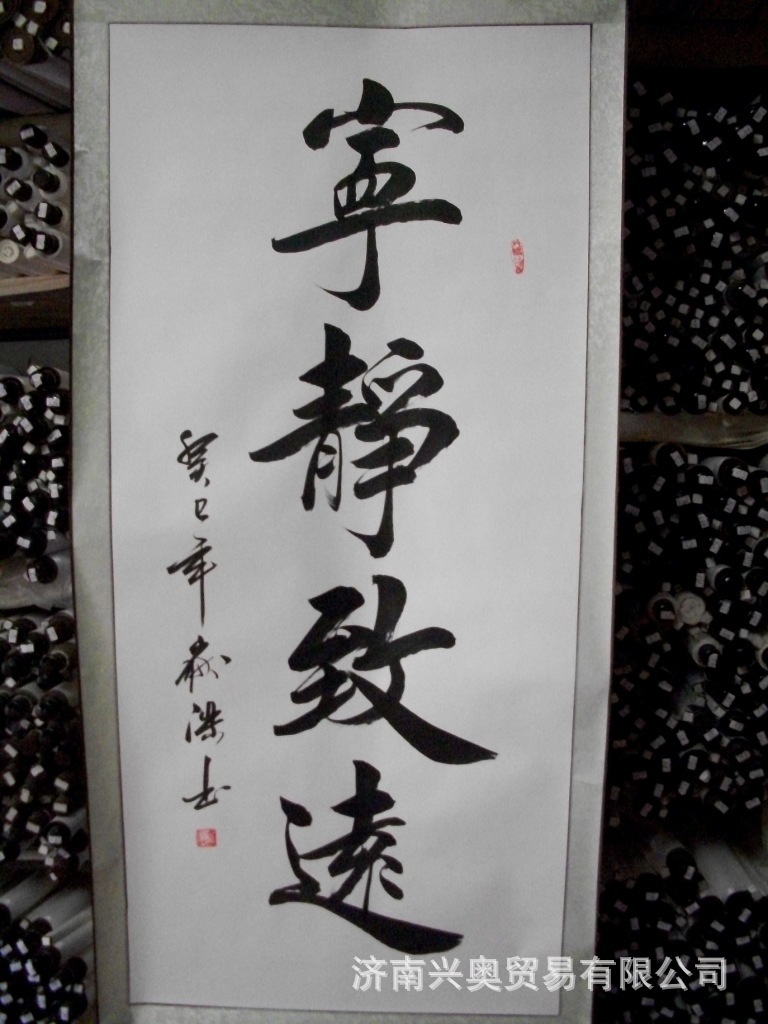 寧靜致遠
癸巳年
济南兴奥贸易有限公司